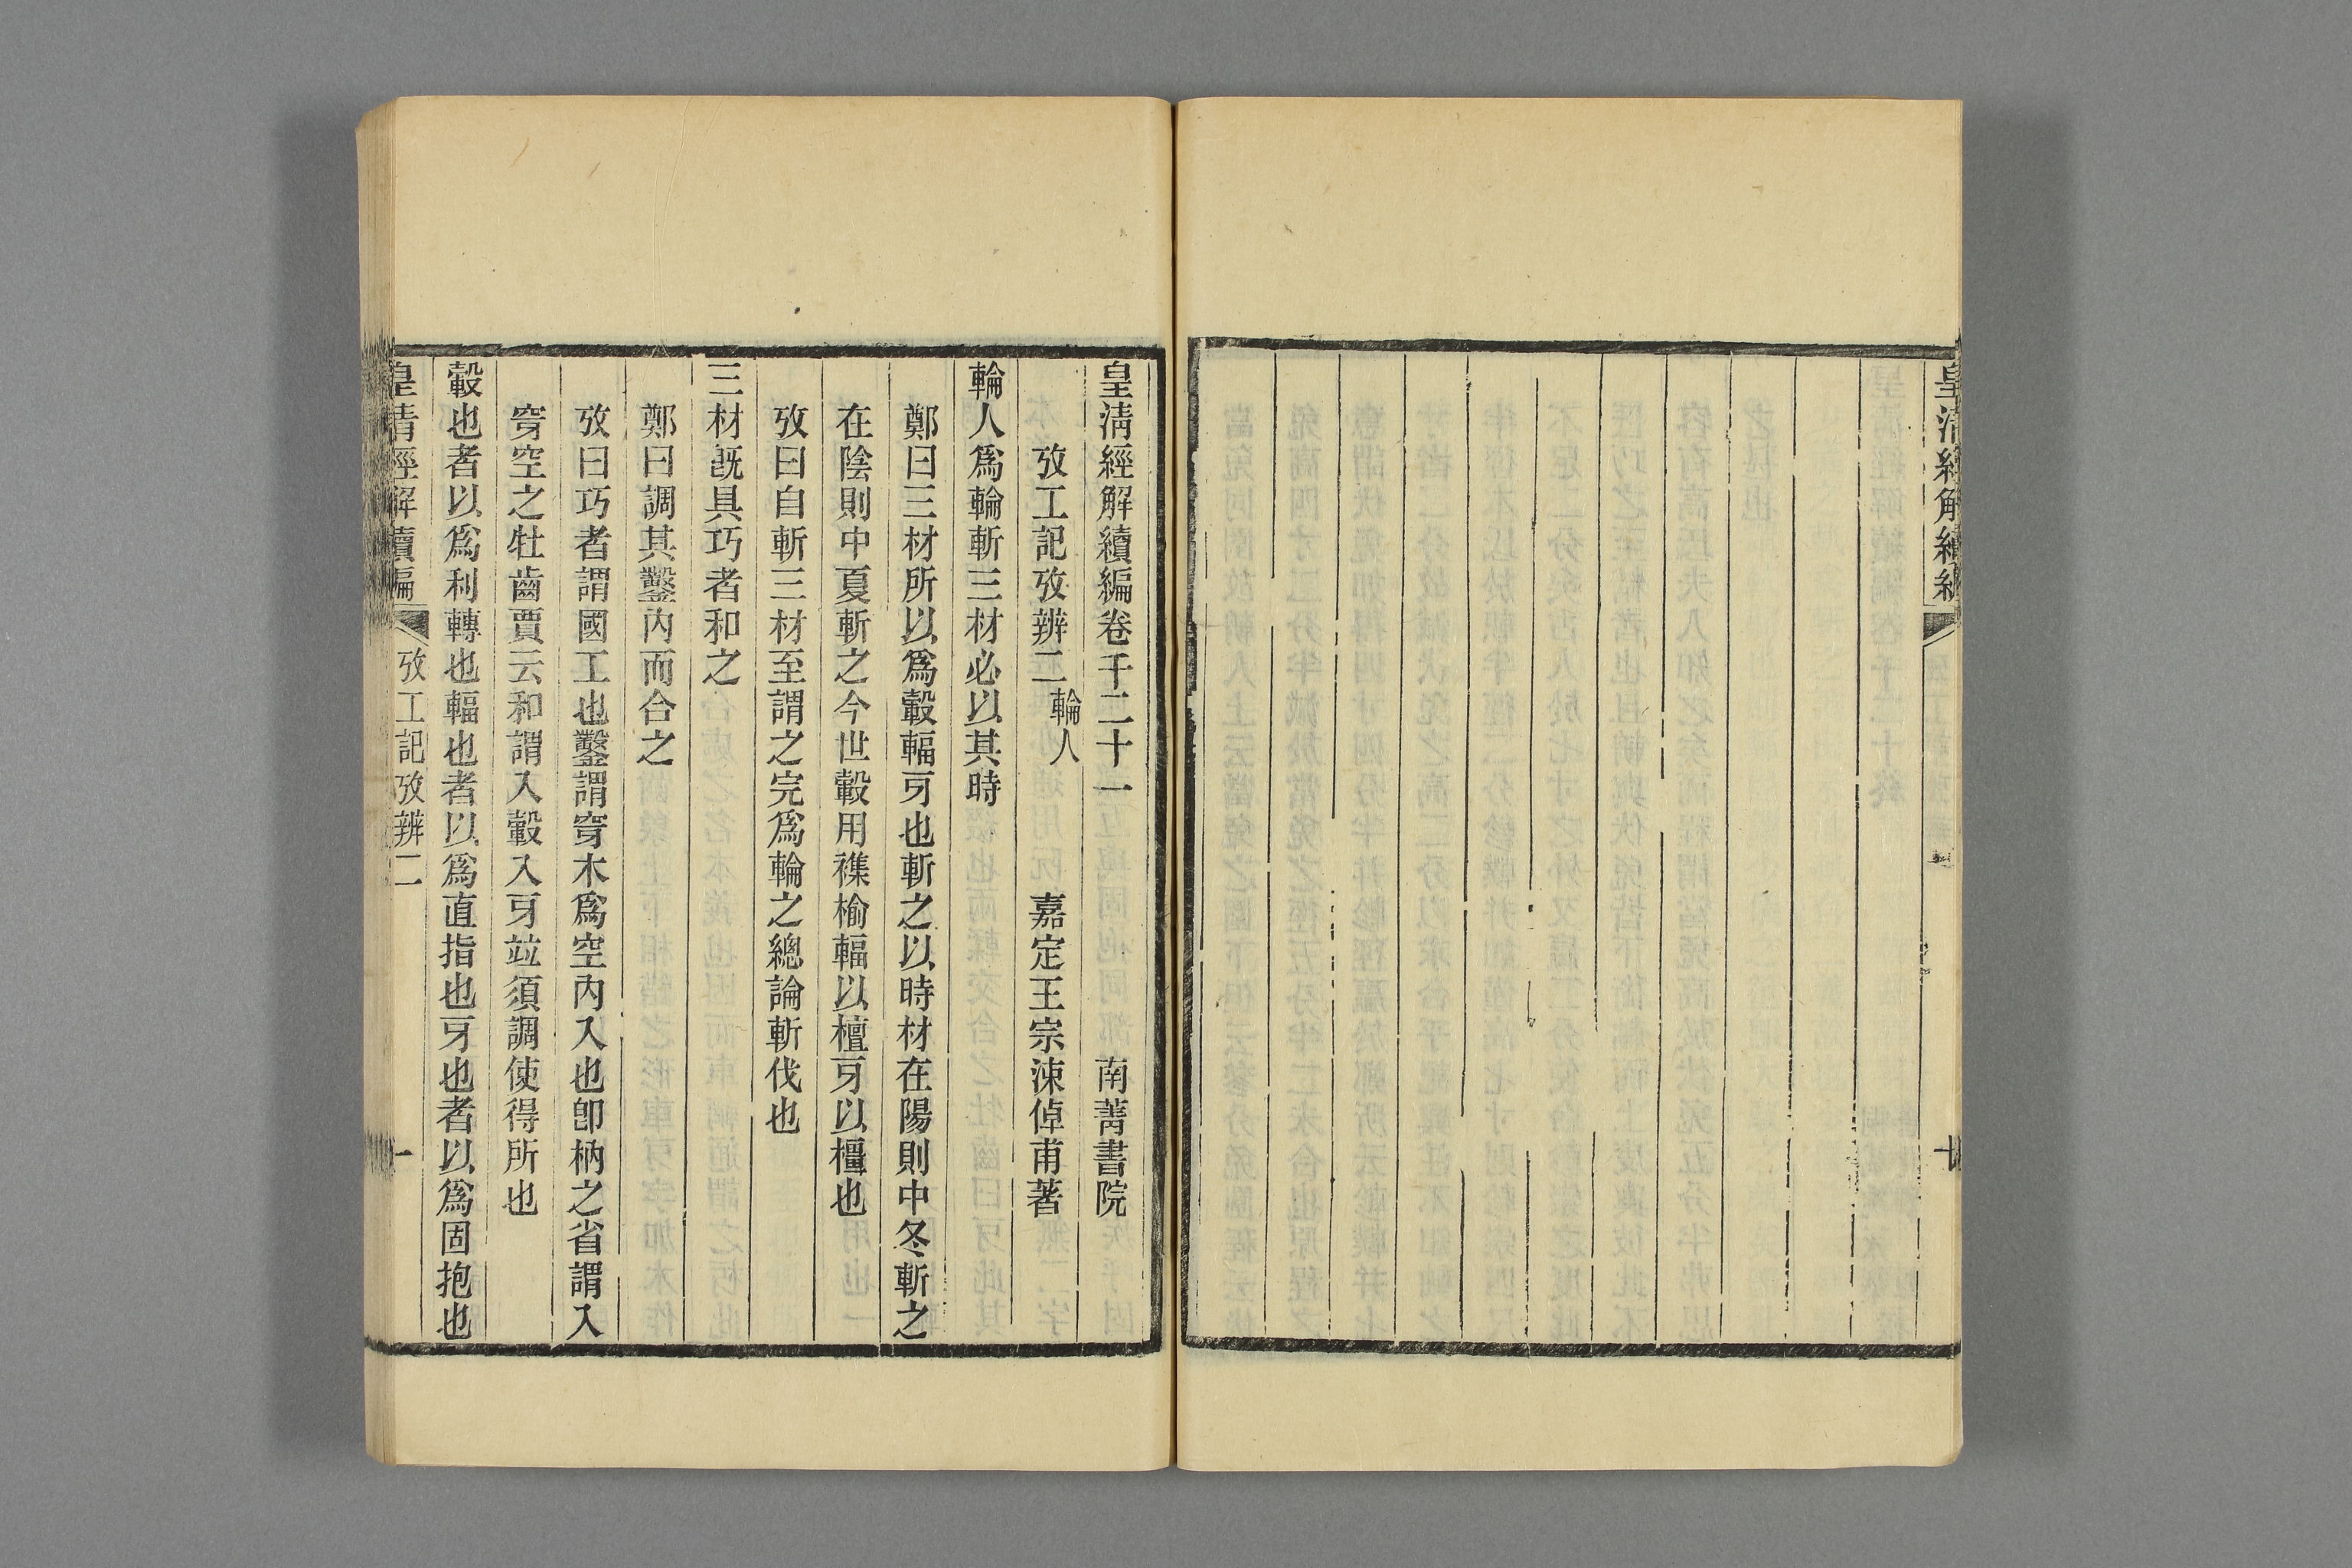 皇清經解續編
皇清經解續編卷千二十一 南菁書院
攷工記攷辨二 輪人 嘉定王宗涑倬甫著
輪人爲輪斬三材必以其時
鄭曰三材所以爲轂輻牙也斬之以時材在陽則中冬斬之
在陰則中夏斬之今世轂用襍榆輻以檀牙以橿也
攷曰自斬三材至謂之完爲輪之總論斬伐也
三材旣具巧者和之
鄭曰調其鑿內而合之
攷曰巧者謂國工也鑿謂穿木爲空內入也卽枘之省謂入
穿空之牡齒賈云和謂入轂入牙竝須調使得所也
轂也者以爲利轉也輻也者以爲直指也牙也者以爲固抱也
皇清經解續編 攷工記攷辨二 一